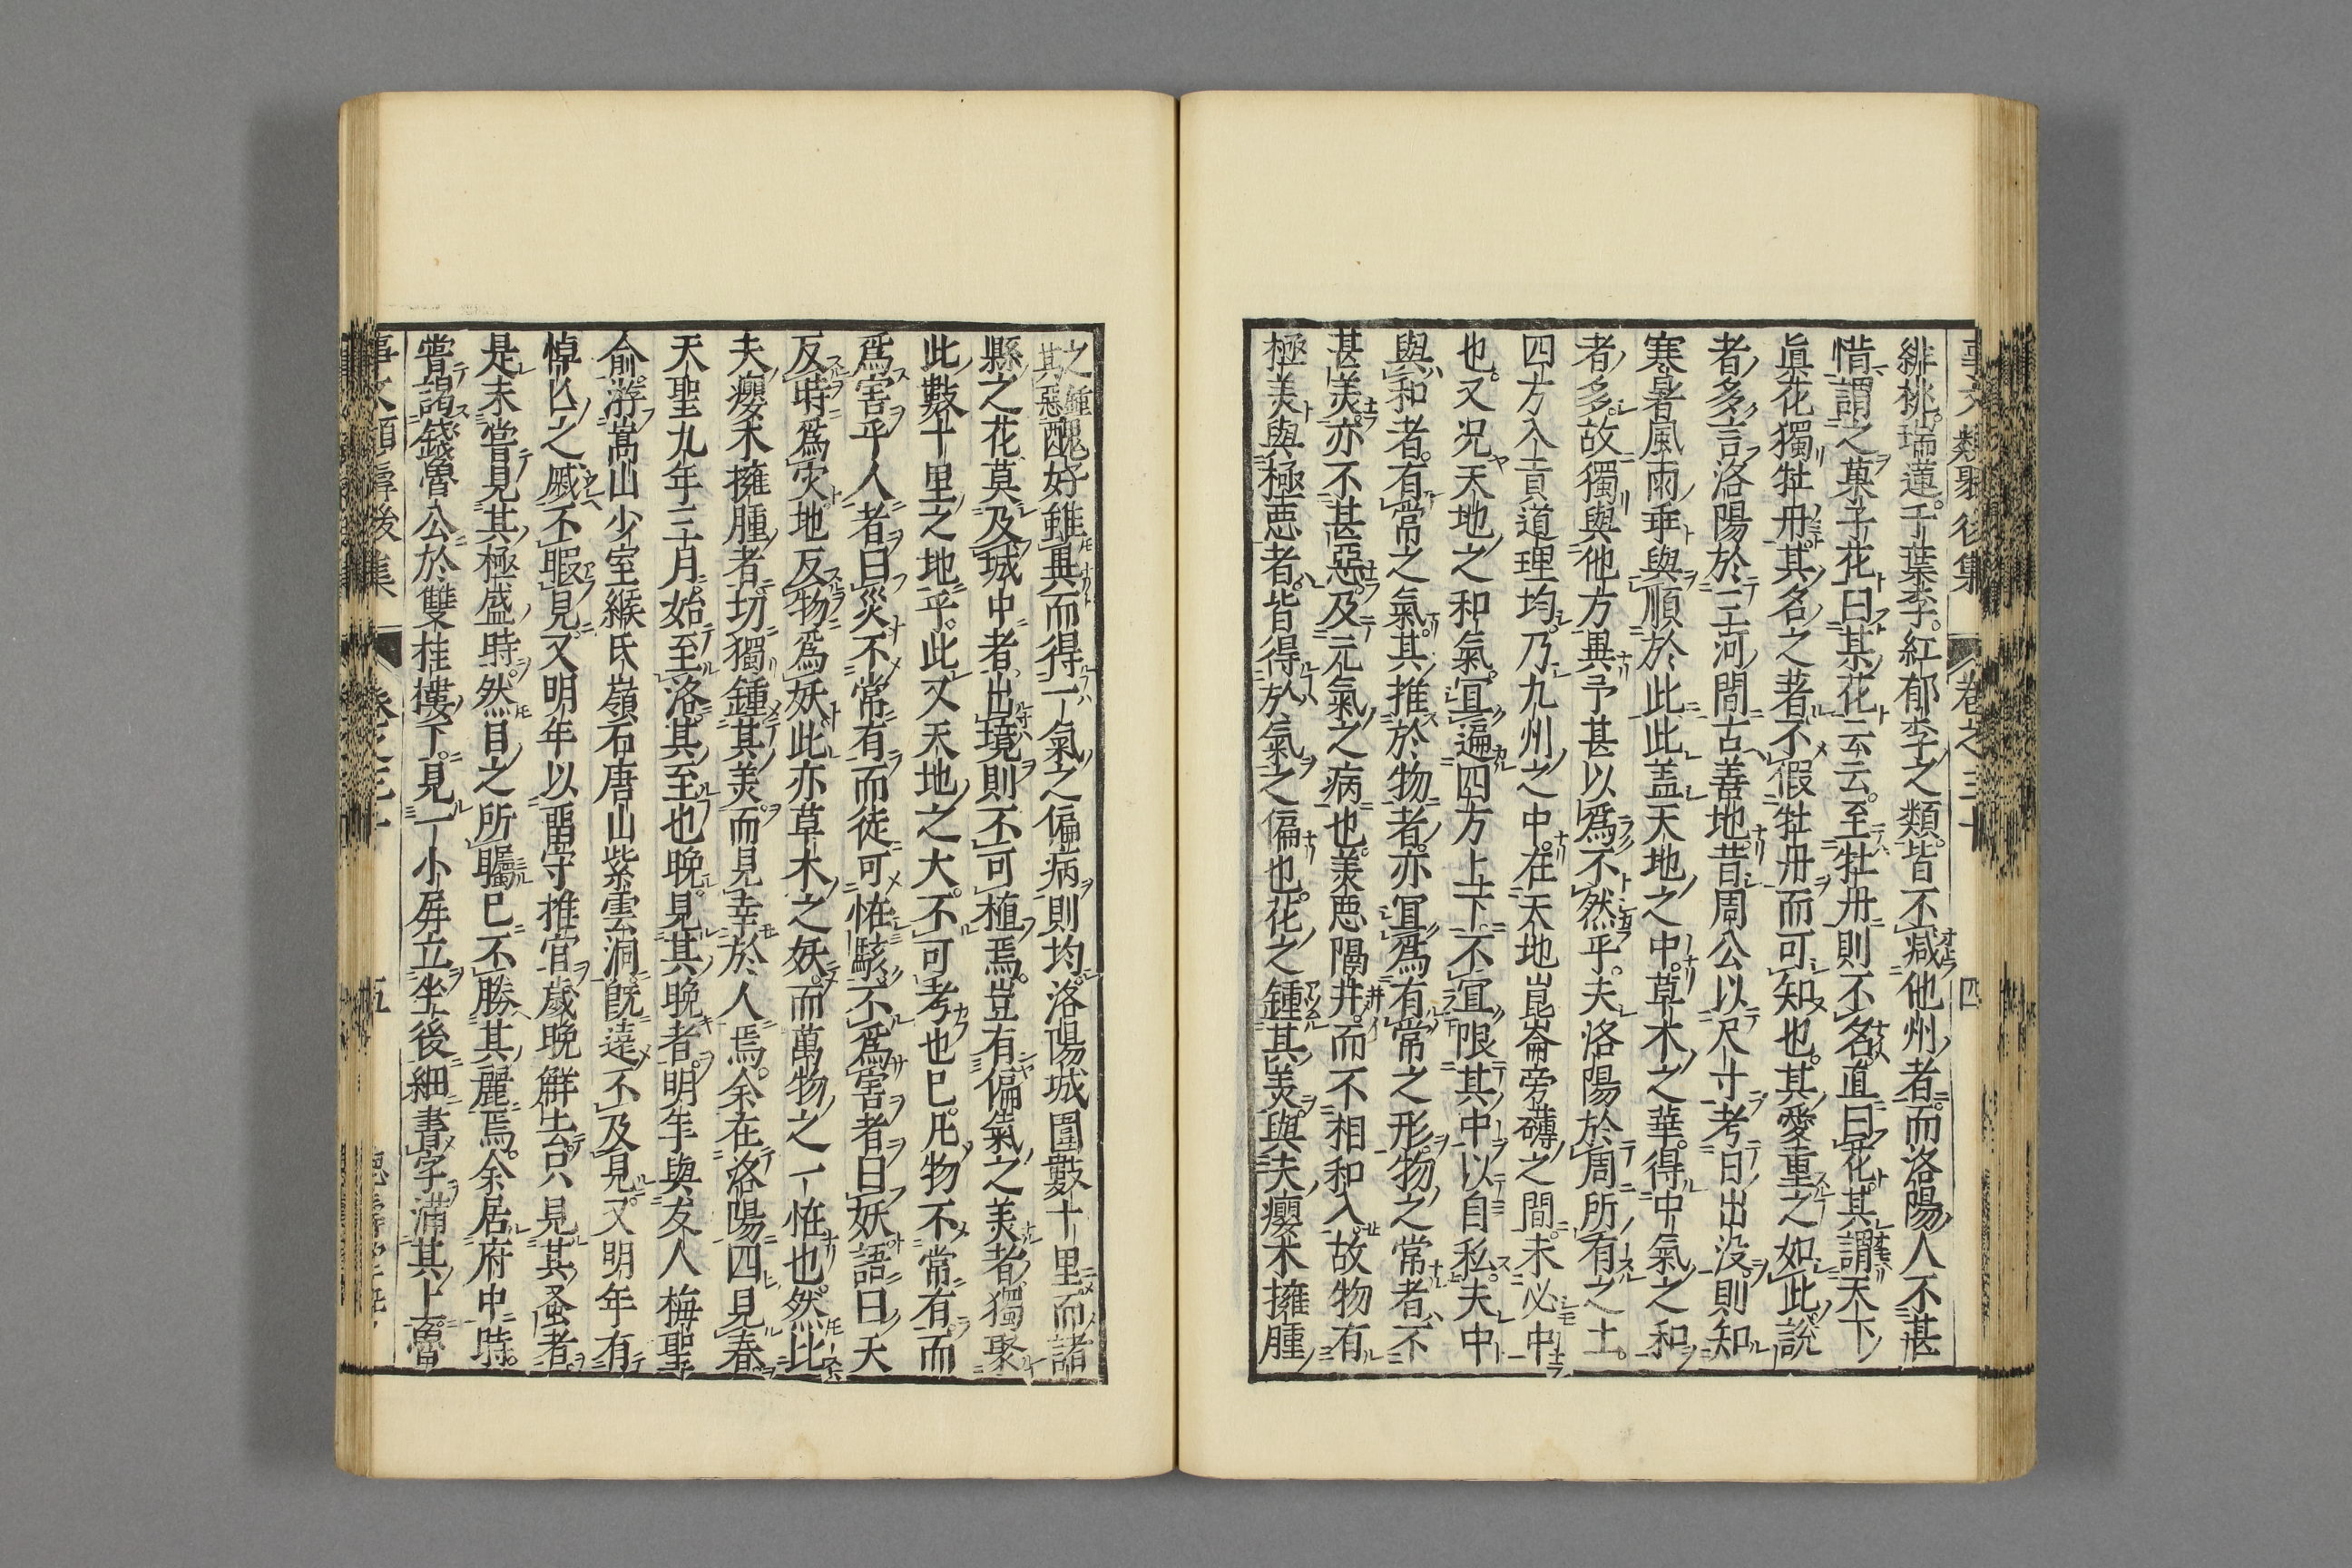 事文類聚後集 卷之三十 四
緋桃瑞蓮千葉李紅郁李之類皆不減他州者而洛陽人不甚
惜謂之菓子花曰某花云云至牡丹則不名直曰花其謂天下
眞花獨牡丹其名之著不假牡丹而可知也其愛重之如此說
者多言洛陽於三河間古善地昔周公以尺寸考日出沒則知
寒暑風雨乖與順於此此盖天地之中草木之華得中氣之和
者多故獨與他方異予甚以爲不然乎夫洛陽於周所有之土
四方入貢道理均乃九州之中在天地崑崙旁礴之間未必中
也又况天地之和氣冝遍四方上下不宜限其中以自私夫中
與和者有常之氣其推於物者亦冝爲有常之形物之常者不
甚美亦不甚惡及元氣之病也美惡隔并而不相和入故物有
極美與極惡者皆得於氣之偏也花之鍾其美與夫癭木擁腫
之鍾其惡醜好雖異而得一氣之偏病則均洛陽城圍數十里而諸
縣之花莫及城中者出境則不可植焉豈有偏氣之美者獨聚
此數十里之地乎此又天地之大不可考也已凡物不常有而
爲害乎人者曰災不常有而徒可恠駭不爲害者曰妖語曰天
反時爲灾地反物爲妖此亦草木之妖而萬物之一恠也然比
夫癭木擁腫者切獨鍾其美而見幸於人焉余在洛陽四見春
天聖九年三月始至洛其至也晚見其晚者明年與友人梅聖
俞游嵩山少室緱氏嶺石唐山紫雲洞旣還不及見又明年有
悼亡之戚不暇見又明年以畱守推官歲晚解去只見其蚤者
是未嘗見其極盛時然目之所矚已不勝其麗焉余居府中時
嘗謁錢魯公於雙桂樓下見一小屏立坐後細書字滿其上魯
事文類聚後集 卷之三十 五